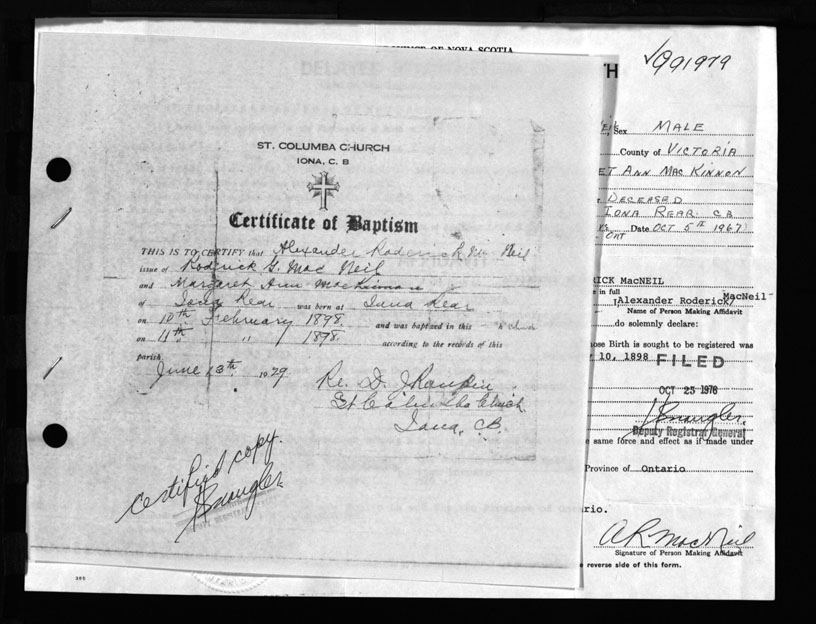 ST. COLUMBA CHURCH
IONA, C. B
Certificate of Baptism
THIS IS TO CERTIFY that Alexander Roderick Mc Neil
issue of Roderick G. Mac Neil
and Margaret Ann MacKinnon
of Iona Rear was born at Iona Rear
on 10th February 1898. and was baptized in this church
on 11th " " 1898. according to the records of this
parish.
June 13th 1929 Re. D.
Iona, CB.
certified copy.
OF NOVA SCOTIA
991979
Sex MALE
County of VICTORIA
ET ANN MACKINNON
DECEASED
IONA REAR. CB
ONT Date OCT 5TH 1967
RICK MacNEIL
e in full
I, Alexander Roderick MacNeil
Name of Person Making Affidavit
do solemnly declare:
ose Birth is sought to be registered was
10, 1898 FILED
OCT 25 1976
Deputy Registrar General
e same force and effect as if made under
Province of Ontario
rio.
A R MacNeil
Signature of Person Making Affidavit
e reverse side of this form.